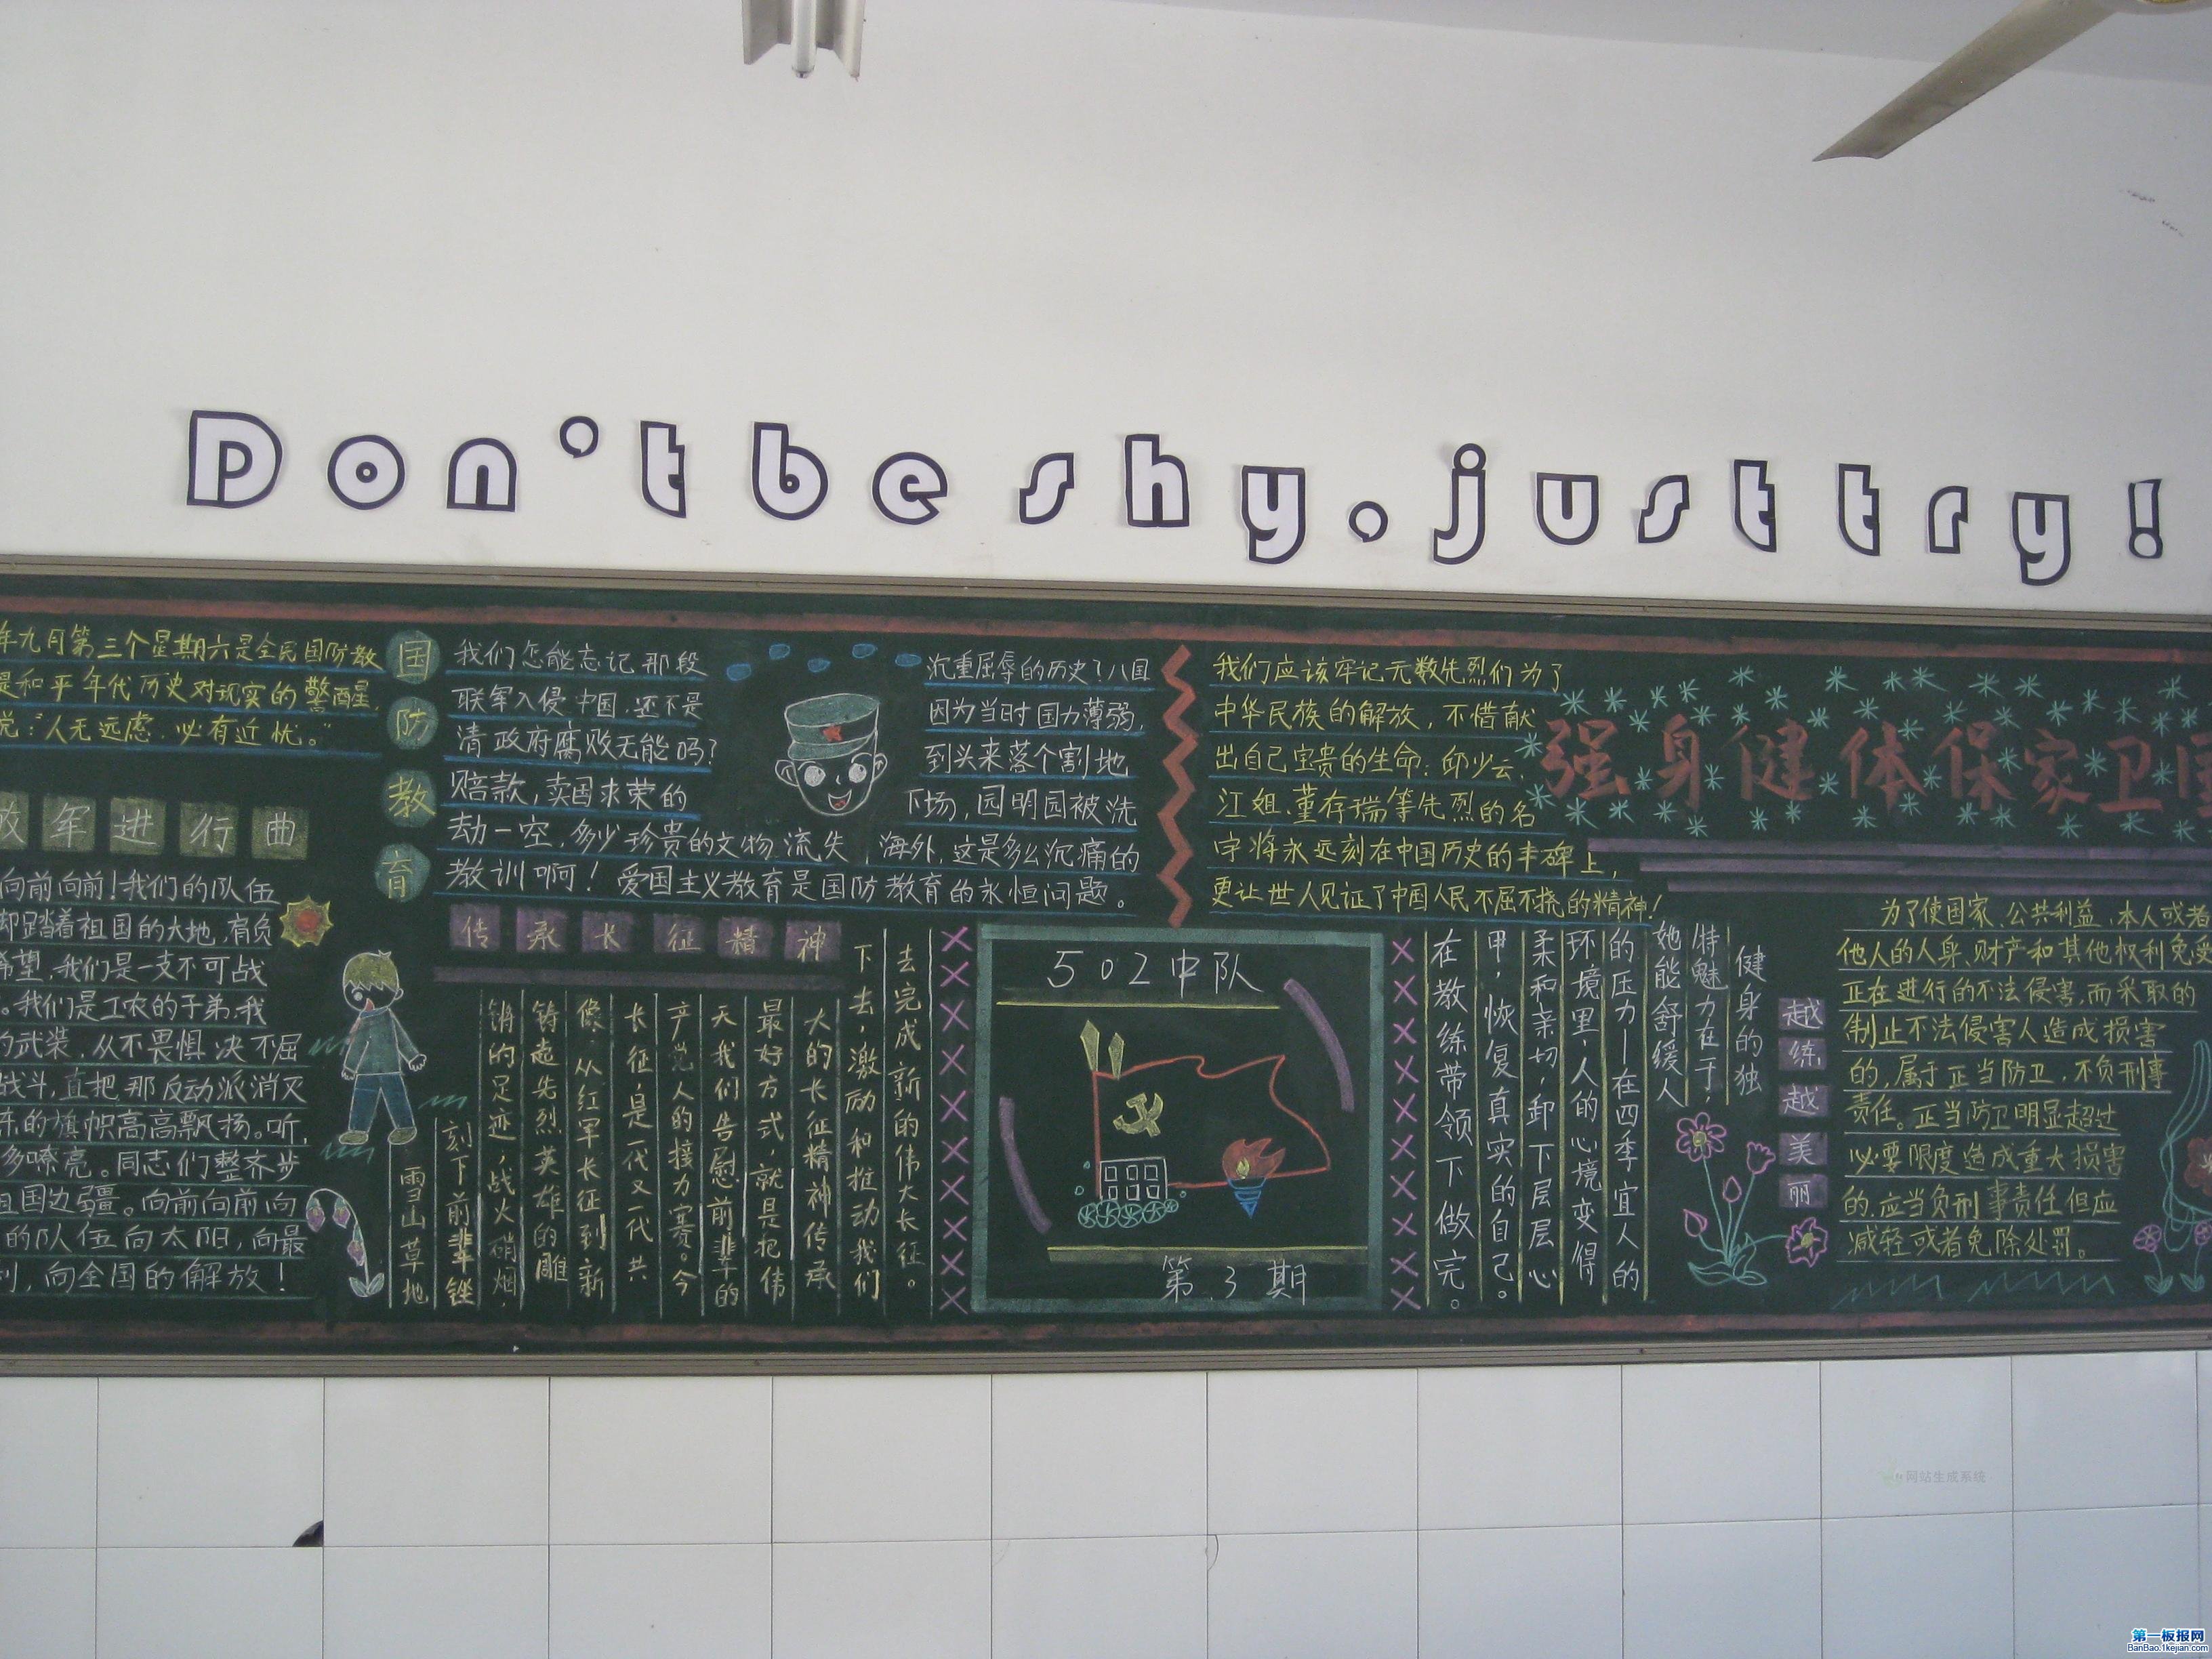 Don't be shy, just try!
年九月第三个星期六是全民国防教
是和平年代历史对现实的警醒,
说:"人无远虑,必有近忧。"
军进行曲
向前向前!我们的队伍
却踏着祖国的大地,有负
希望,我们是一支不可战
。我们是工农的子弟,我
的武装,从不畏惧,决不屈
战斗,直把那反动派消灭
的旗帜高高飘扬。听,
多嘹亮。同志们整齐步
祖国边疆。向前向前向
的队伍向太阳,向最
利,向全国的解放!
国防教育
我们怎能忘记那段沉重屈辱的历史?八国
联军入侵中国,还不是因为当时国力薄弱,
清政府腐败无能吗?到头来落个割地
赔款,卖国求荣的下场,园明园被洗
劫一空,多少珍贵的文物流失海外,这是多么沉痛的
教训啊!爱国主义教育是国防教育的永恒问题。
传承长征精神
雪山草地
刻下前辈铿
锵的足迹,战火硝烟,
铸起先烈英雄的雕
像。从红军长征到新
长征是一代又一代共
产党人的接力赛。今
天我们告慰前辈的
最好方式,就是把伟
大的长征精神传承
下去,激励和推动我们
去完成新的伟大长征。
502中队
第3期
我们应该牢记无数先烈们为了
中华民族的解放,不惜献
出自己宝贵的生命:邱少云,
江姐,董存瑞等先烈的名
字将永远刻在中国历史的丰碑上,
更让世人见证了中国人民不屈不挠的精神!
强身健体保家卫国
越练越美丽
健身的独
特魅力在于,
她能舒缓人
的压力—在四季宜人的
环境里,人的心境变得
柔和亲切,卸下层层心
甲,恢复真实的自己。
在教练带领下做完。
为了使国家、公共利益,本人或者
他人的人身、财产和其他权利免受
正在进行的不法侵害,而采取的
制止不法侵害人造成损害
的,属于正当防卫,不负刑事
责任。正当防卫明显超过
必要限度造成重大损害
的,应当负刑事责任但应
减轻或者免除处罚。
网站生成系统
第一板报网
BanBao.1kejian.com